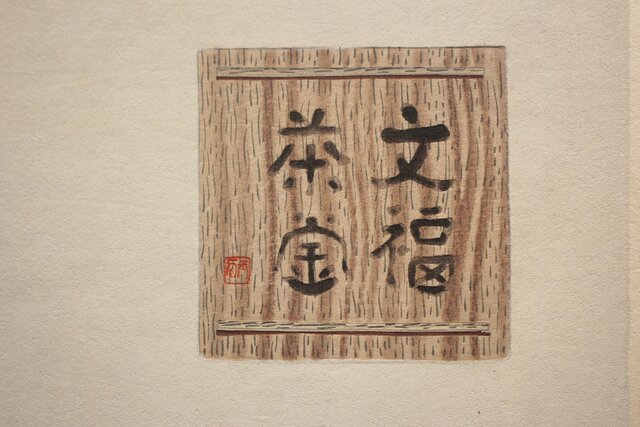 文福
茶釜